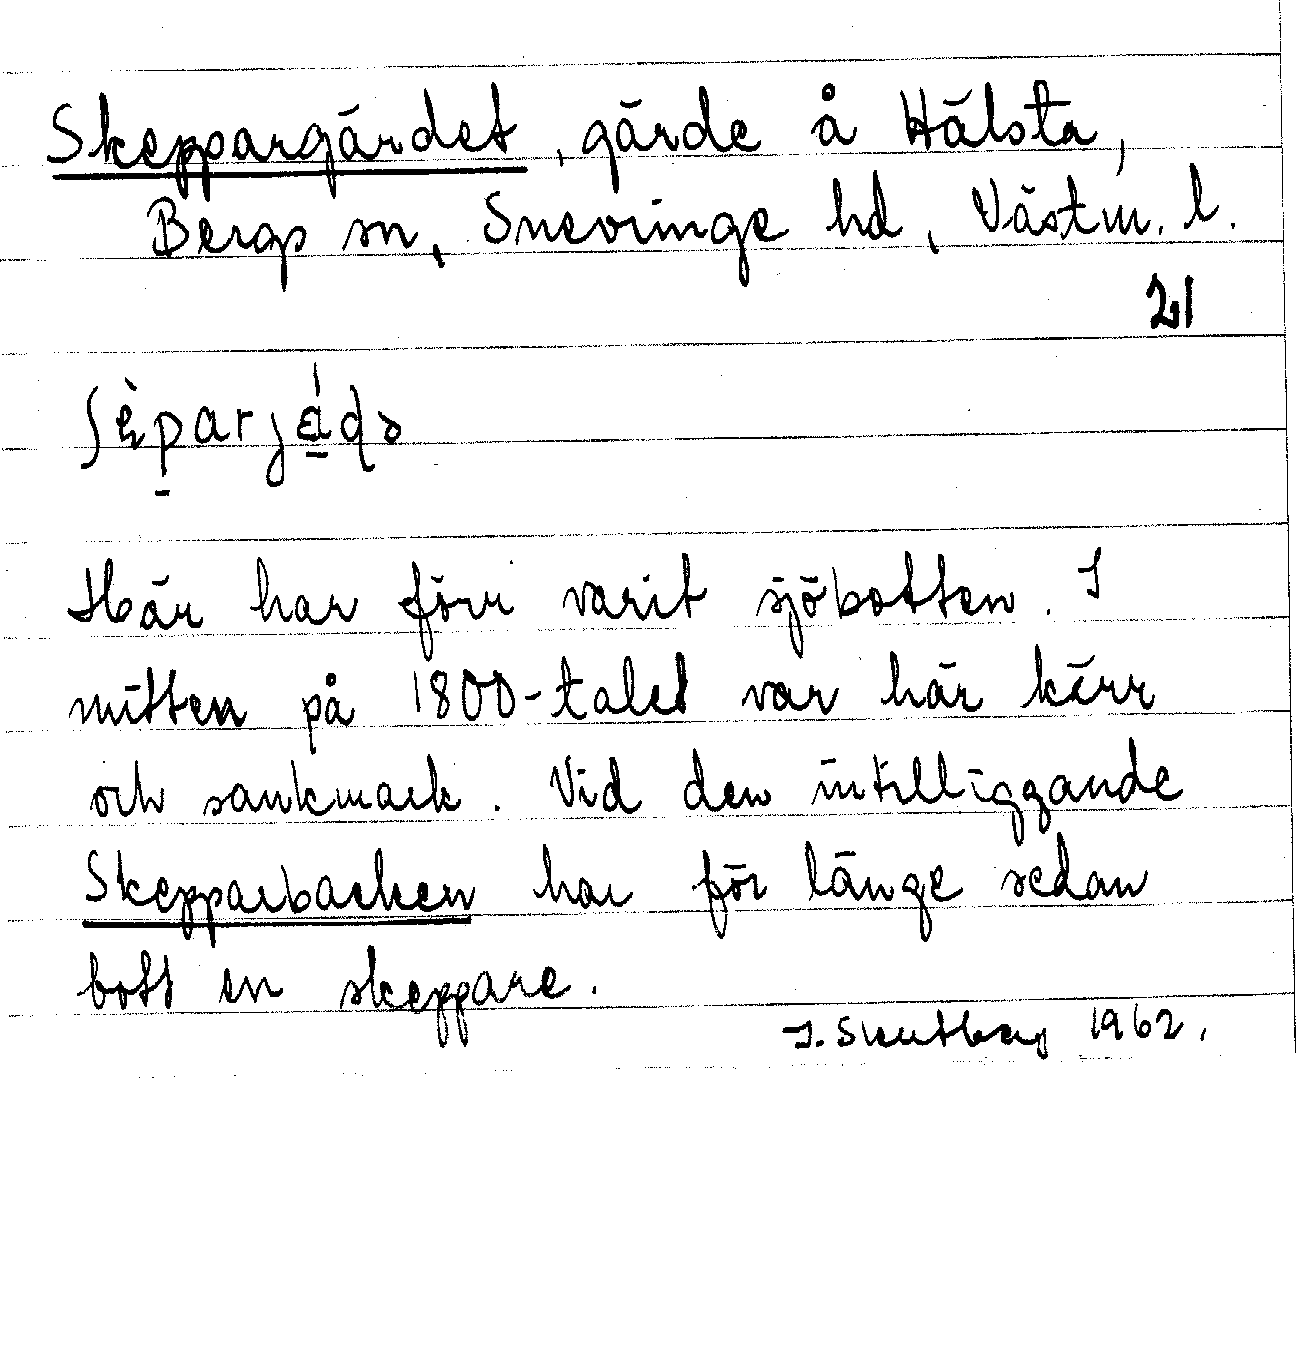 Skeppargärdet, gärde å Hälsta,
Bergs sn, Snevringe hd, Västm. l.
21
Här har förr varit sjöbotten. I
mitten på 1800-talet var här kärr
och sankmark. Vid den intilliggande
Skepparbacken har för länge sedan
bott en skeppare.
1962.